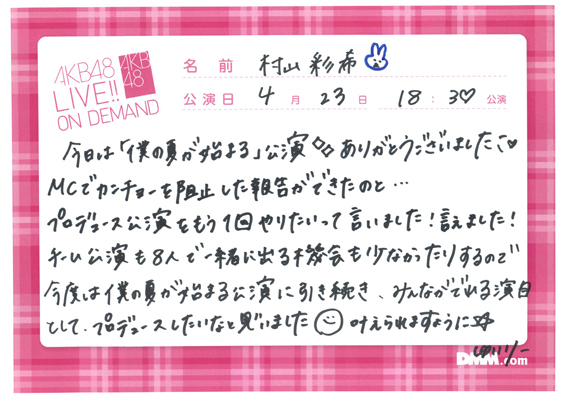 AKB48
LIVE!!
ON DEMAND
AKB
48
名前 村山彩希
公演日 4月23日 18:30公演
今日は「僕の夏が始まる」公演ありがとうございました
MCでカンチョーを阻止した報告ができたのと…
プロデュース公演をもう1回やりたいって言いました!言えました!
チーム公演も8人で一緒に出る機会も少なかったりするので
今度は僕の夏が始まる公演に引き続き、みんながでれる演目
として、プロデュースしたいなと思いました 叶えられますように☆
ゆいりー
DMM.com